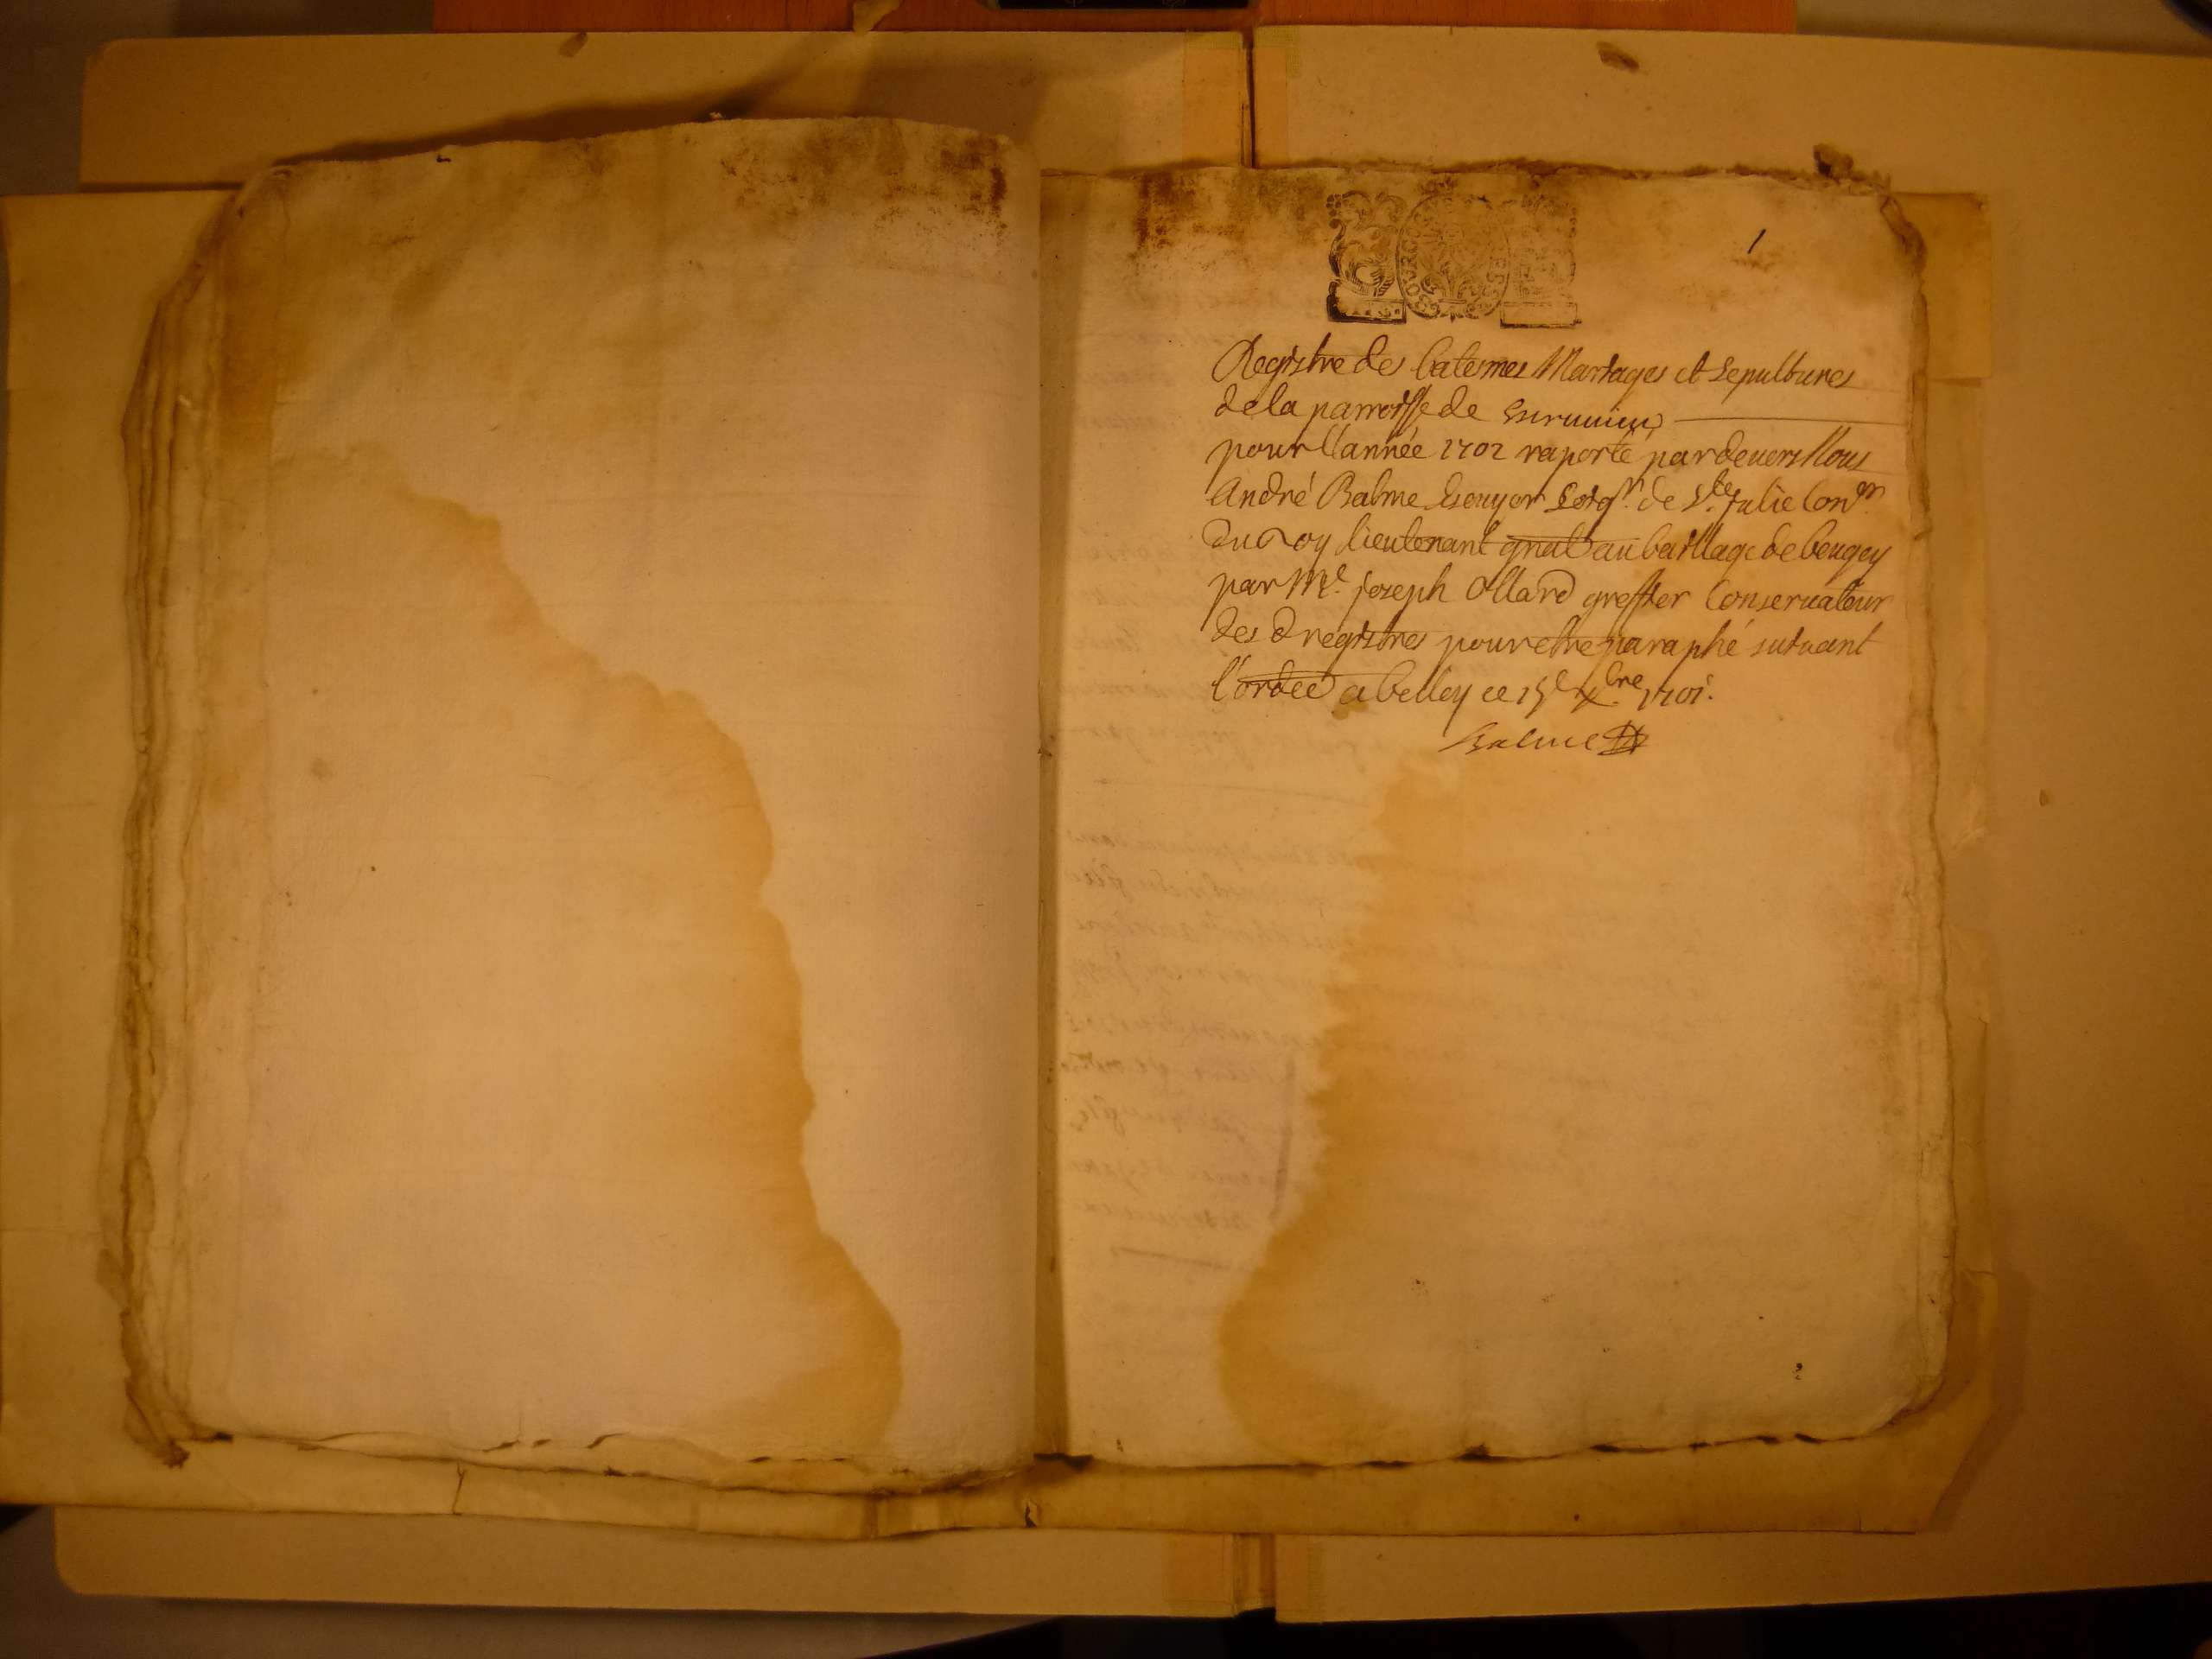 1
Registre des batesmes Mariages et sepultures
de la parroisse de
pour l'année 1702 raporté pardevers Nous
André Balme Escuyer Seigr. de Ste. Julie Coner.
Du Roy lieutenant gnal au bailliage de beugey
par Me. joseph Ollard greffier Conservateur
des d registres pour etre paraphé suivant
l'ordce a belley ce 15e xbre 1701.
Balme